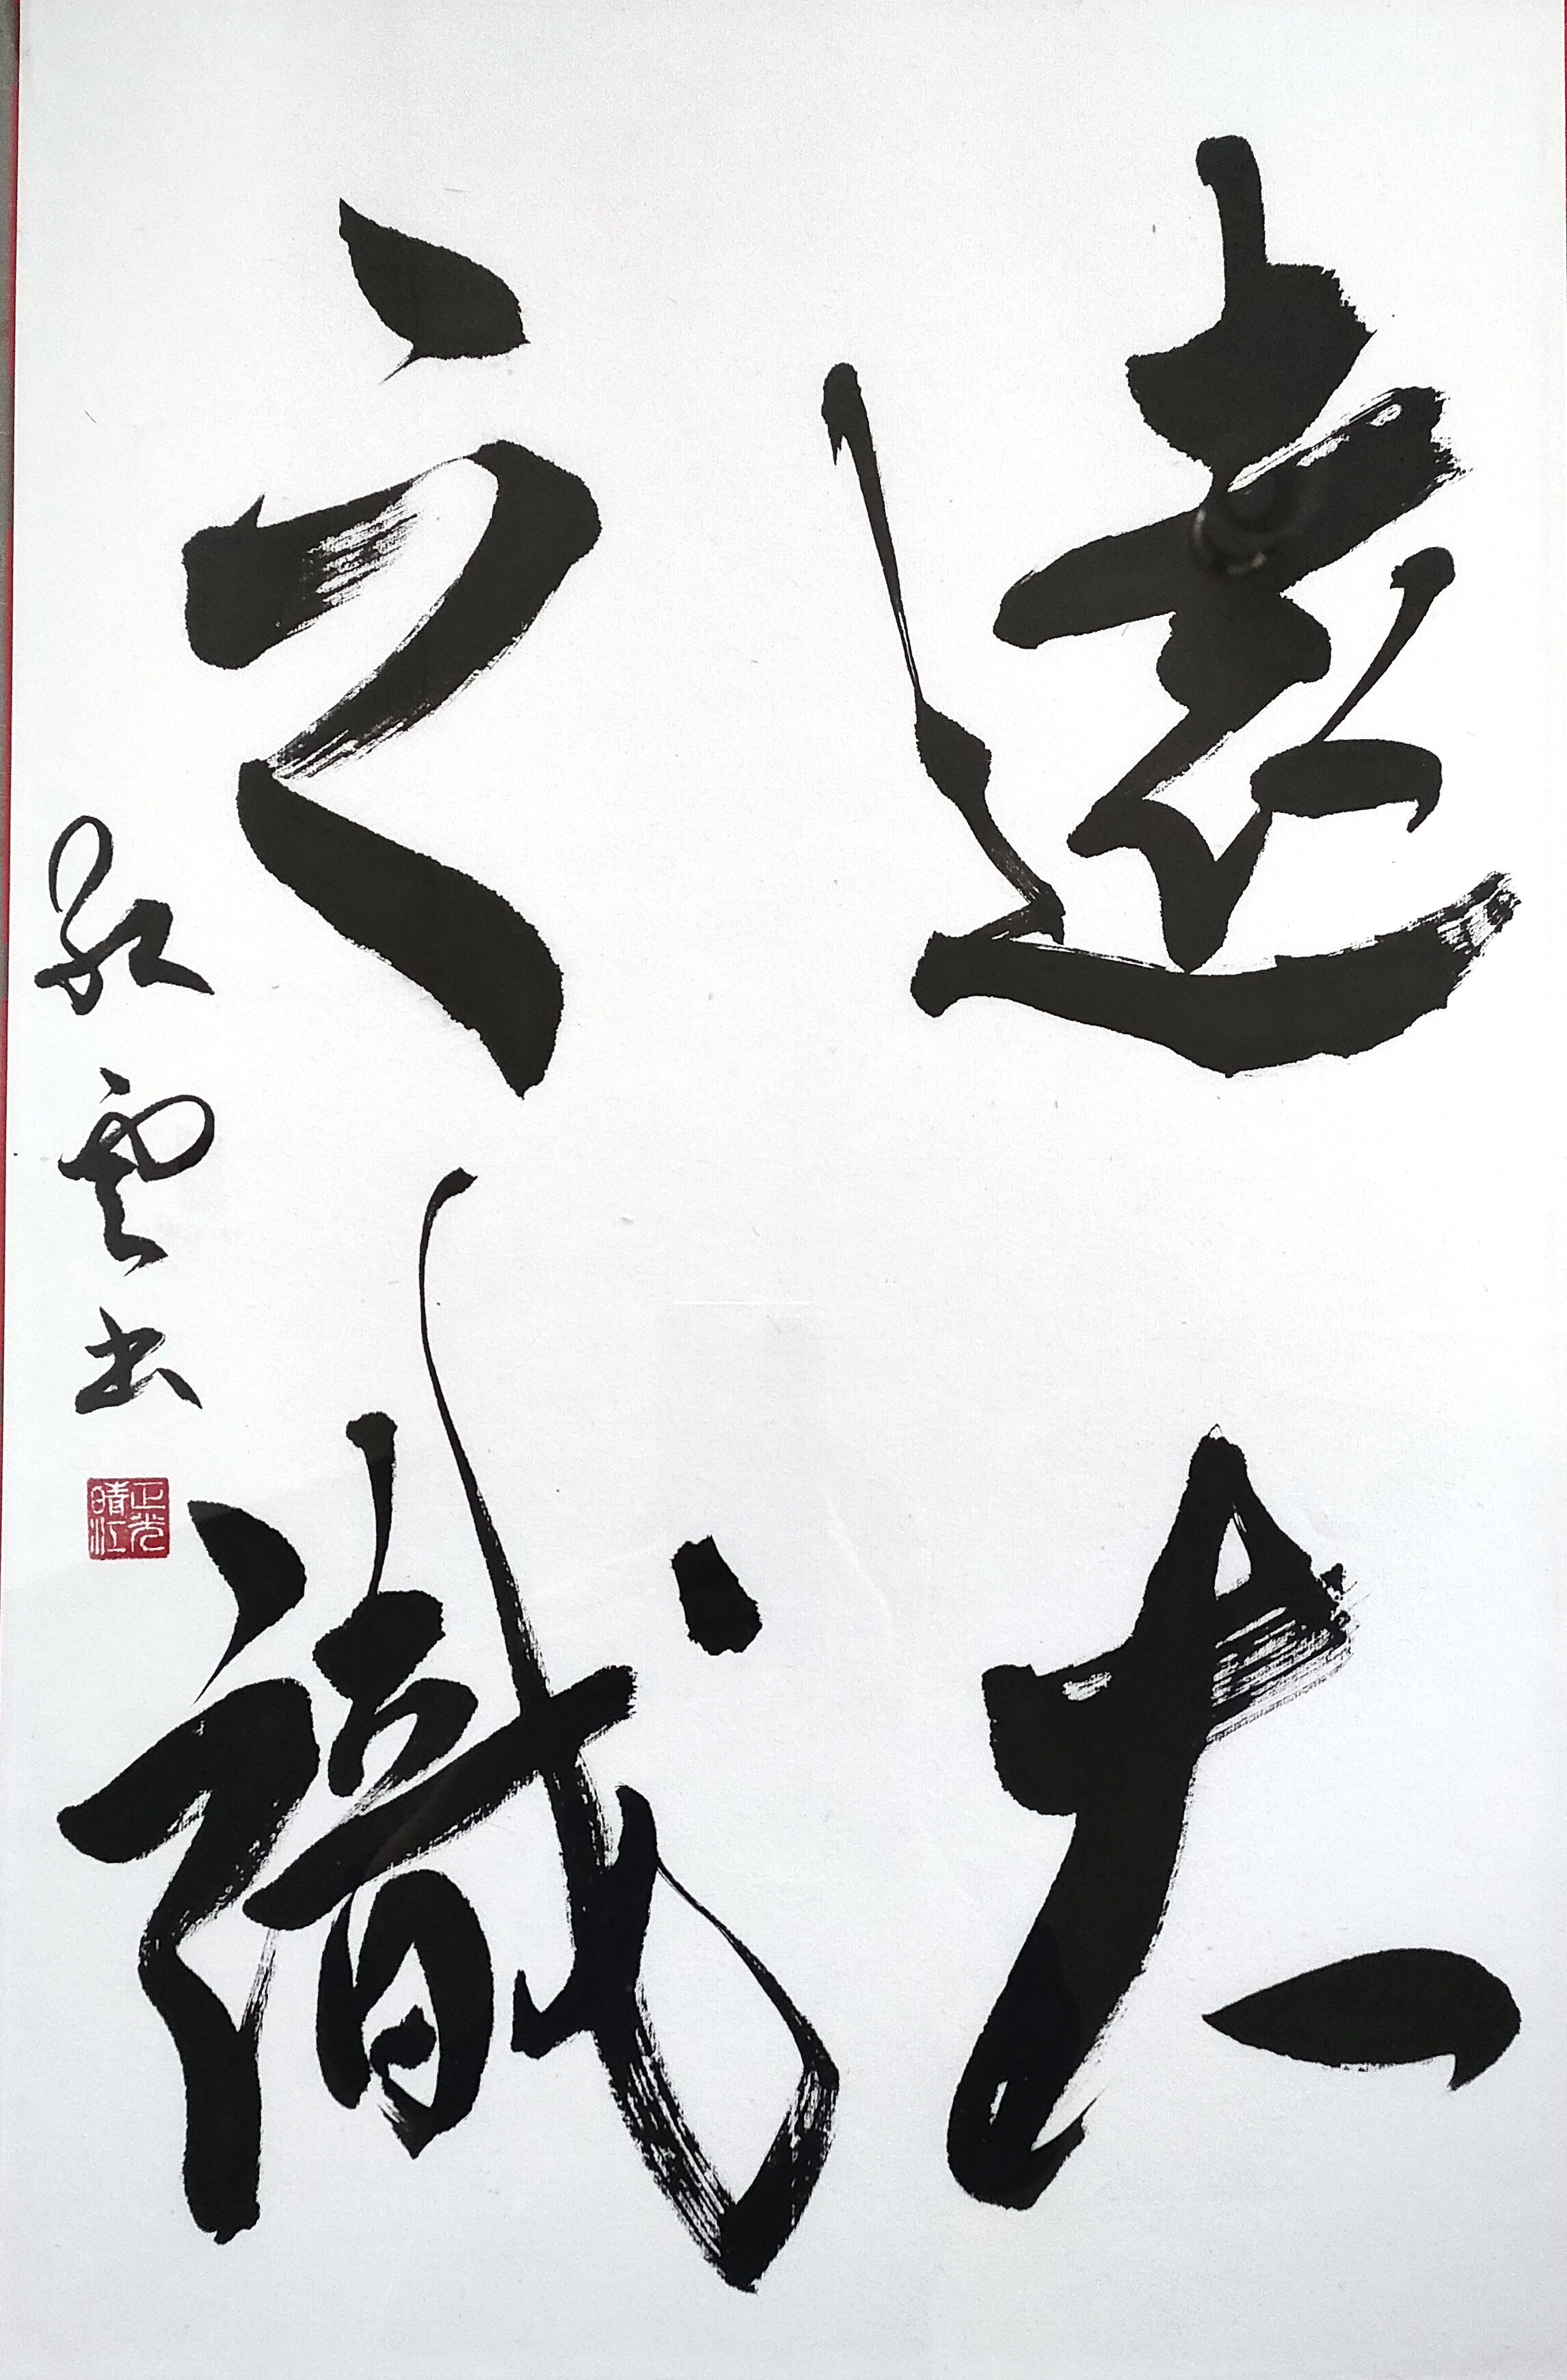 遠大
之識
雲書
正光
晴江